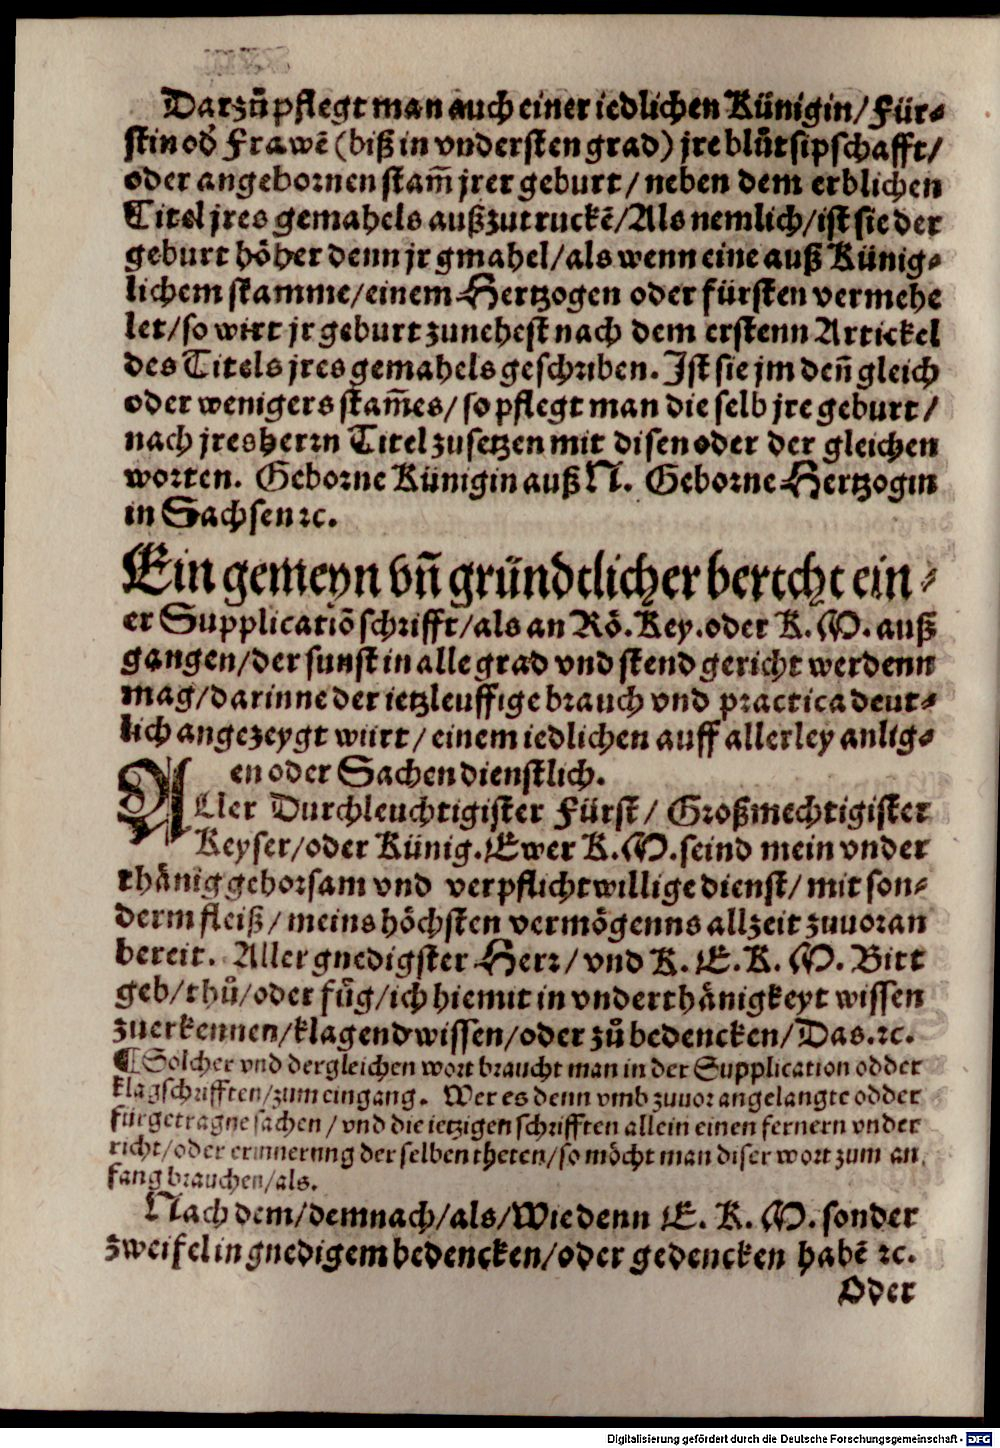 Darzů pflegt man auch einer iedlichen Künigin/ Für-
stin oď Frawē (biß in vndersten grad) jre blůtsipschafft/
oder angebornen stam̄ jrer geburt/ neben dem erblichen
Titel jres gemahels außzutruckē/ Als nemlich/ ist sie der
geburt höher denn jr gmahel/ als wenn eine auß Künig-
lichem stamme/ einem Hertzogen oder fürsten vermehe
let/ so wirt jr geburt zunehest nach dem erstenn Artickel
des Titels jres gemahels geschriben. Ist sie jm den̄ gleich
oder wenigers stam̄es/ so pflegt man die selb jre geburt/
nach jres herrn Titel zusetzen mit disen oder der gleichen
worten. Geborne Künigin auß N. Geborne Hertzogin
in Sachsen ꝛc.
Ein gemeyn vn̄ gründtlicher bertcht ein-
er Supplicatiō schrifft/ als an Rö. Key. oder K. M. auß
gangen/ der sunst in alle grad vnd stend gericht werdenn
mag/ darinne der ietzleuffige brauch vnd practica deut-
lich angezeygt würt/ einem iedlichen auff allerley anlig-
en oder Sachen dienstlich.
ALler Durchleuchtigister Fürst/ Großmechtigister
Keyser/ oder Künig. Ewer K. M. seind mein vnder
thänig gehorsam vnd verpflicht willige dienst/ mit son-
derm fleiß/ meins höchsten vermögenns allzeit zuuoran
bereit. Aller gnedigster Herr/ vnd K. E. K. M. Bitt
geb/ thů/ oder füg/ ich hiemit in vnderthänigkeyt wissen
zuerkennen/ klagend wissen/ oder zů bedencken/ Das. ꝛc.
¶ Solcher vnd dergleichen wort braucht man in der Supplication odder
klagschrifften/ zum eingang. Wer es denn vmb zuuor angelangte odder
fürgetragne sachen/ vnd die ietzigen schrifften allein einen fernern vnder
richt/ oder erinnerung der selben theten/ so möcht man diser wort zum an
fang brauchen/ als.
Nach dem/ demnach/ als/ Wie denn E. K. M. sonder
zweifel in gnedigem bedencken/ oder gedencken habē ꝛc.
Oder
Digitalisierung gefördert durch die Deutsche Forschungsgemeinschaft - DFG